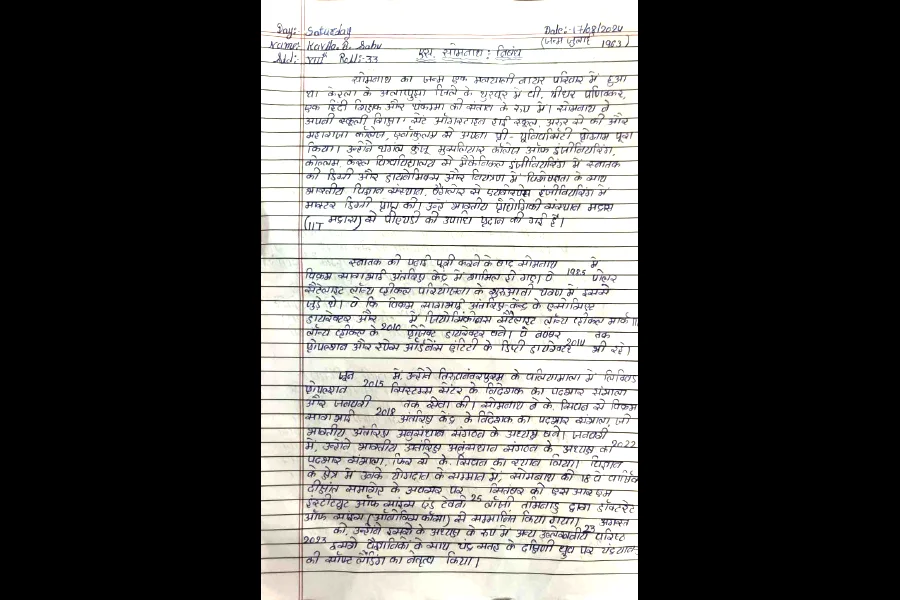 Day:- Saturday Date:- 17/08/2024
Name:- Kavita. A. Sahu (जन्म जुलाई 1963)
Std:- VIII Roll:- 33 एस. सोमनाथ : निबंध
सोमनाथ का जन्म एक मलयाली नायर परिवार में हुआ
था केरला के अलाप्पुझा जिले के थुरवूर में वी. श्रीधर पणिक्कर,
एक हिंदी शिक्षक और थंकम्मा की संतान के रूप में। सोमनाथ ने
अपनी स्कूली शिक्षा सेंट ऑगस्टाइन हाई स्कूल, अरूर से की और
महाराजा कॉलेज, एर्नाकुलम से अपना प्री-यूनिवर्सिटी प्रोग्राम पूरा
किया। उन्होंने थंगल कुंजू मुसलियार कॉलेज ऑफ इंजीनियरिंग,
कोल्लम, केरल विश्वविद्यालय से मैकेनिकल इंजीनियरिंग में स्नातक
की डिग्री और डायनेमिक्स और नियंत्रण में विशेषज्ञता के साथ
भारतीय विज्ञान संस्थान, बैंगलोर से एयरोस्पेस इंजीनियरिंग में
मास्टर डिग्री प्राप्त की। उन्हें भारतीय प्रौद्योगिकी संस्थान मद्रास
(IIT मद्रास) से पीएचडी की उपाधि प्रदान की गई है।
स्नातक की पढ़ाई पूरी करने के बाद सोमनाथ में
विक्रम साराभाई अंतरिक्ष केंद्र में शामिल हो गए। वे 1985 पोलर
सैटेलाइट लॉन्च व्हीकल परियोजना के शुरुआती चरण में इससे
जुड़े थे। वे कि विक्रम साराभाई अंतरिक्ष केंद्र के एसोसिएट
डायरेक्टर और में जियोसिंक्रोनस सैटेलाइट लॉन्च व्हीकल मार्क III
लॉन्च व्हीकल के 2010 प्रोजेक्ट डायरेक्टर बने। वे नवंबर तक
प्रोपल्शन और स्पेस ऑर्डिनेंस एंटिटी के डिप्टी डायरेक्टर 2014 भी रहे।
जून में, उन्होंने तिरुवनंतपुरम के वलियामाला में लिक्विड
प्रोपल्शन 2015 सिस्टम्स सेंटर के निदेशक का पदभार संभाला
और जनवरी तक सेवा की। सोमनाथ ने के. सिवन से विक्रम
साराभाई 2018 अंतरिक्ष केंद्र के निदेशक का पदभार संभाला, जो
भारतीय अंतरिक्ष अनुसंधान संगठन के अध्यक्ष बने। जनवरी
में, उन्होंने भारतीय अंतरिक्ष अनुसंधान संगठन के अध्यक्ष का 2022
पदभार संभाला, फिर से के. सिवन का स्थान लिया। विज्ञान
के क्षेत्र में उनके योगदान के सम्मान में, सोमनाथ को 18 वें वार्षिक
दीक्षांत समारोह के अवसर पर सितंबर को एस आर एम
इंस्टीट्यूट ऑफ साइंस एंड टेक्नो 25 लॉजी तमिलनाडु द्वारा डॉक्टरेट
ऑफ साइंस (ऑनोरिस कॉसा) से सम्मानित किया गया। 23 अगस्त
को, उन्होंने इसरो के अध्यक्ष के रूप में अन्य उल्लेखनीय वरिष्ठ
2023 इसरो वैज्ञानिकों के साथ चंद्र सतह के दक्षिणी ध्रुव पर चंद्रयान-3
की सॉफ्ट लैंडिंग का नेतृत्व किया।